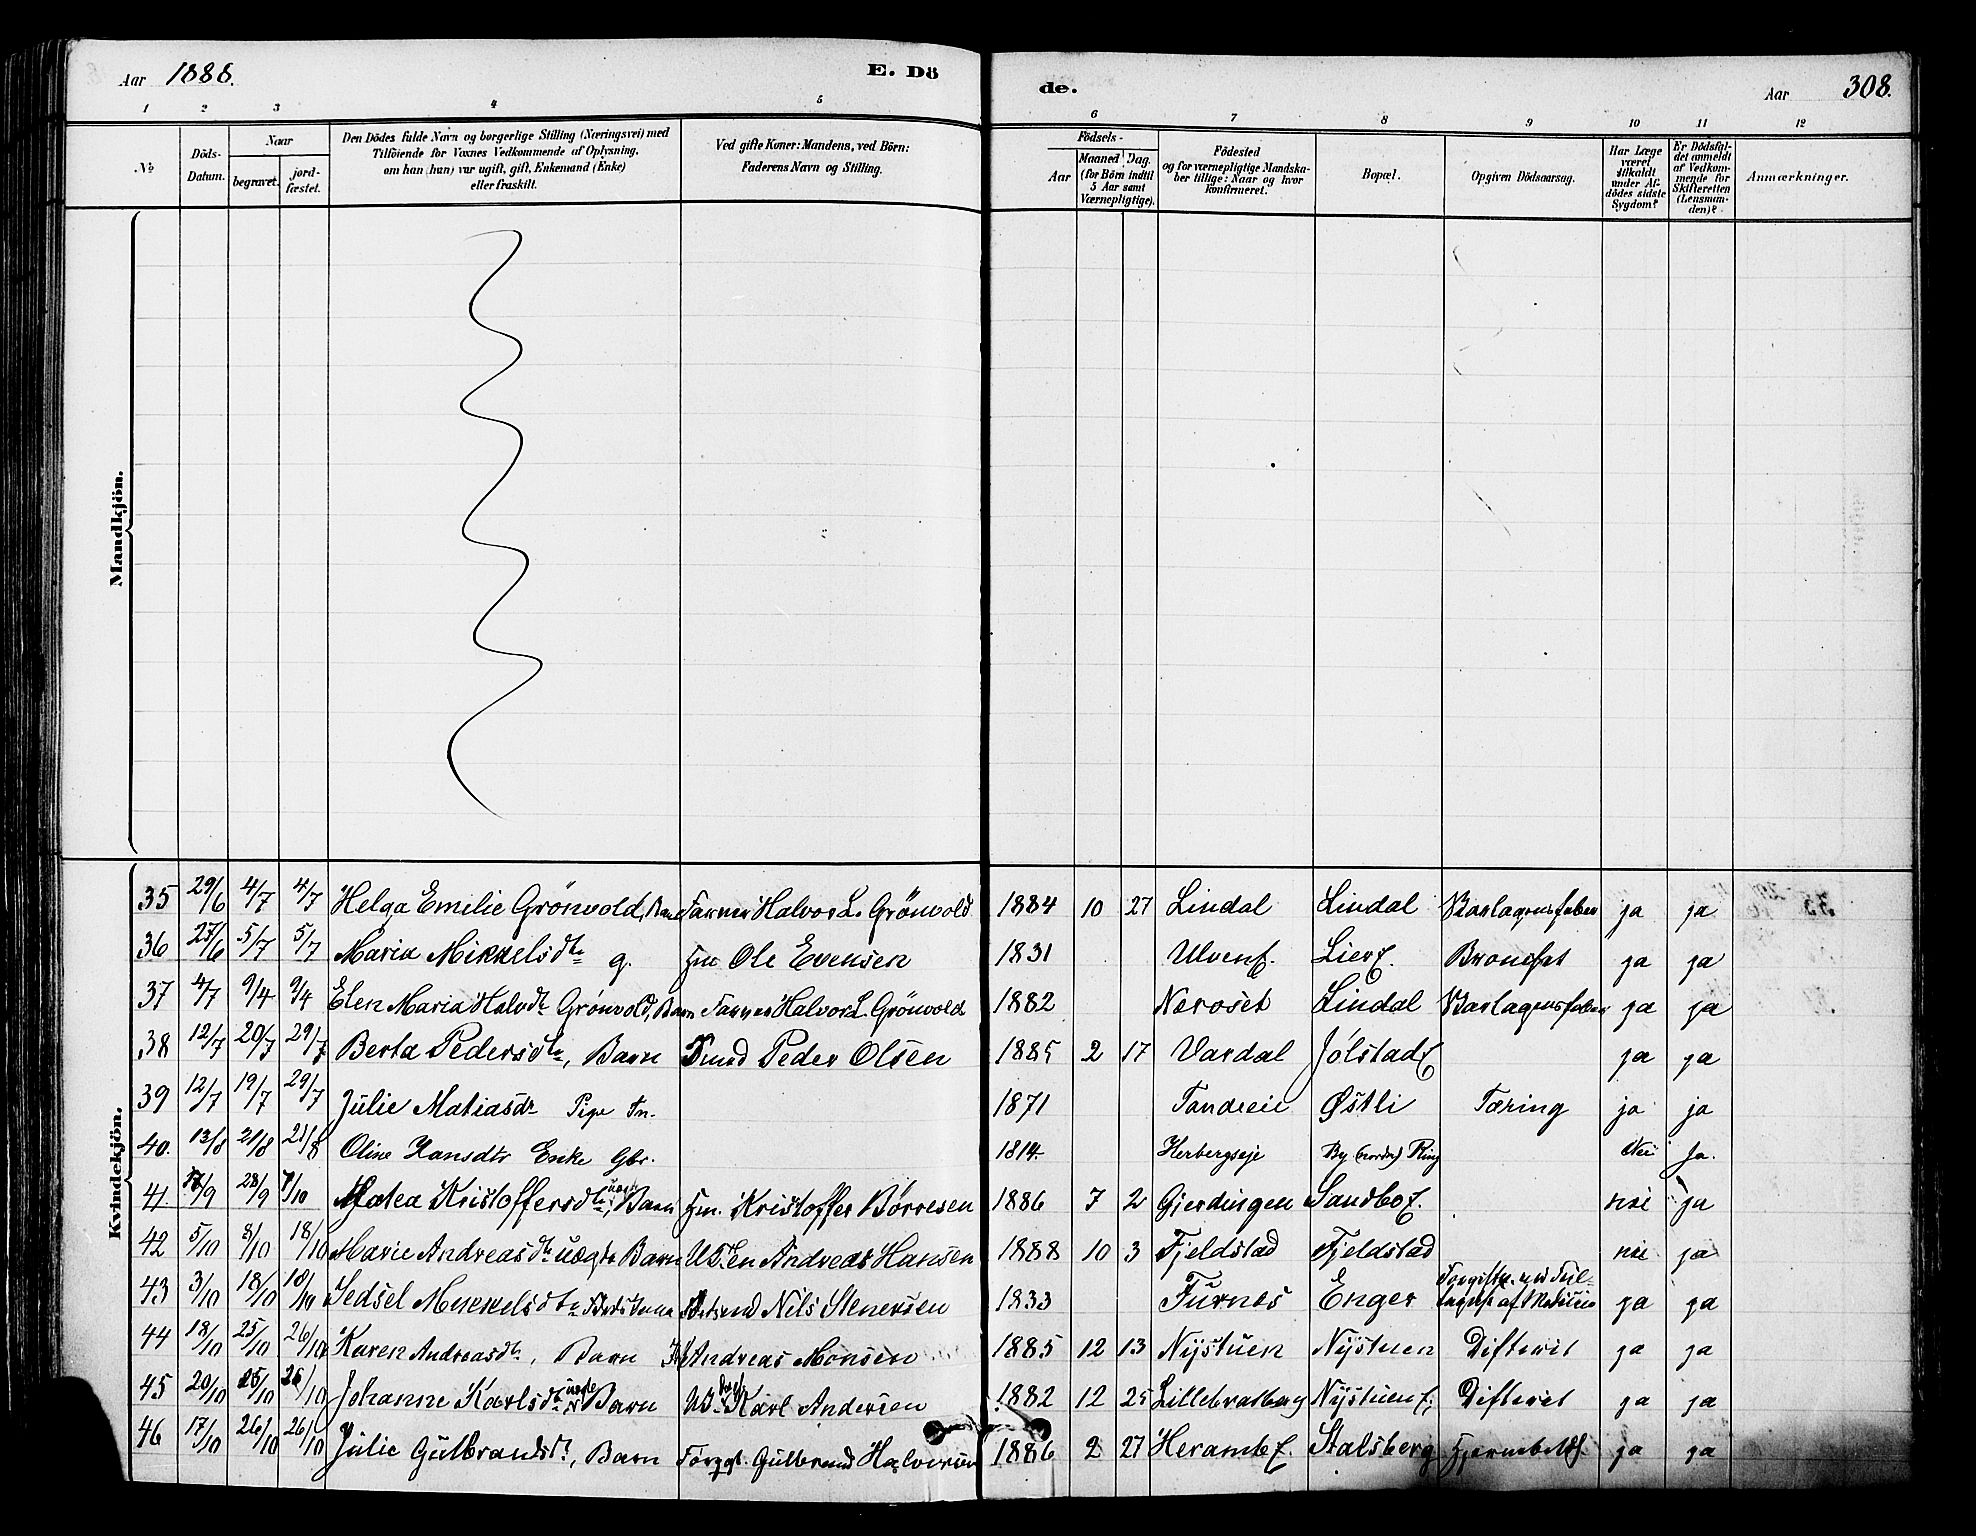 Aar 1888.
E. Dö
de.
Aar 308.
1 2 3 4 5 6 7 8 9 10 11 12
No
Döds-Datum.
Naar
begravet. jordfæstet.
Den Dödes fulde Navn og borgerlige Stilling (Næringsvei) med
Tilföiende for Voxnes Vedkommende af Oplysning,
om han (hun) var ugift, gift, Enkemand (Enke)
eller fraskilt.
Ved gifte Koner: Mandens, ved Börn:
Faderens Navn og Stilling.
Födsels-
Aar
Maaned Dag.
(for Börn indtil
5 Aar samt
Værnepligtige).
Födested
og for værnepligtige Mandskaber
tillige: Naar og hvor
konfirmeret.
Bopæl.
Opgiven Dödsaarsag.
Har Læge
været
tilkaldt
under Afdödes
sidste
Sygdom?
Er Dödsfaldet
anmeldt
af Vedkommende
for
Skifteretten
(Lensmanden)?
Anmærkninger.
Mandkjön.
Kvindekjön.
35 29/6 4/7 4/7 Helga Emilie Grönvold, Barn Farver Halvor L. Grönvold 1884 10 27 Lindal Lindal ja ja
36 27/6 5/7 5/7 Maria Mikkelsdtr g. Hm Ole Evensen 1831 Ulvenf. Lierf. ja ja
37 4/7 9/4 9/4 Elen Maria Halvdtr Grönvold, Barn Farver Halvor L. Grönvold 1882 Neroset Lindal ja ja
38 12/7 20/7 29/7 Berta Pedersdtr, Barn Peder Olsen 1885 2 17 Vardal Jölstad ja ja
39 12/7 19/7 29/7 Julie Matiasdr Pige Tn. 1871 Østli Tæring ja ja
40. 13/8 21/8 21/8 Oline Hansdtr Enke Gbr. 1814 Herbergseje By (nordre) Ring Nei Ja.
41. 28/9 7/10 Matea Kristoffersdtr, uægte Barn Hm. Kristoffer Börresen 1886 7 2 Gjerdingen Sandbo nei ja
42 5/10 8/10 18/10 Marie Andreasdtr uægte Barn Andreas Hansen 1888 10 3 Fjeldstad Fjeldstad nei ja
43 3/10 18/10 18/10 Sedsel Mikkelsdtr Nils Stenersen 1833 Furnes Enger ja ja
44 18/10 25/10 26/10 Karen Andreasdtr, Barn Andreas Monsen 1885 12 13 Nystuen Nystuen Difterit ja ja
45 20/10 26/10 26/10 Johanne Karlsdtr uægte Barn Karl Andersen 1882 12 25 Nystuen Difterit ja ja
46 17/10 26/10 26/10 Julie Gulbrandsdtr, Barn Gulbrand Halvorsen 1886 2 27 Stalsberg ja ja